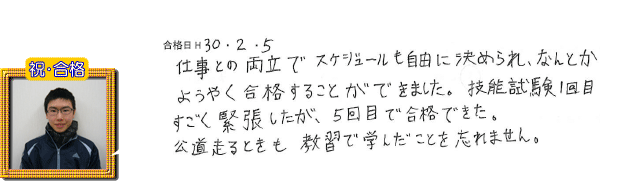 祝・合格
合格日 H 30・2・5
仕事との両立で スケジュールも自由に決められ、なんとか
ようやく合格することができました。技能試験1回目
すごく緊張したが、5回目で合格できた。
公道走るときも 教習で学んだことを忘れません。